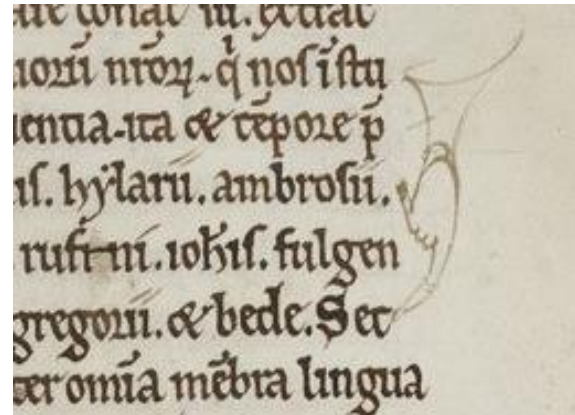 uorū nr̄oꝝ. q̇ nos īstu
uentia. ita & tēpore p̄
is. hẏlarii. ambrosii.
rufini. ioh̄is. fulgen
gregorii. & bede. Sec
omīa mēbra lingua